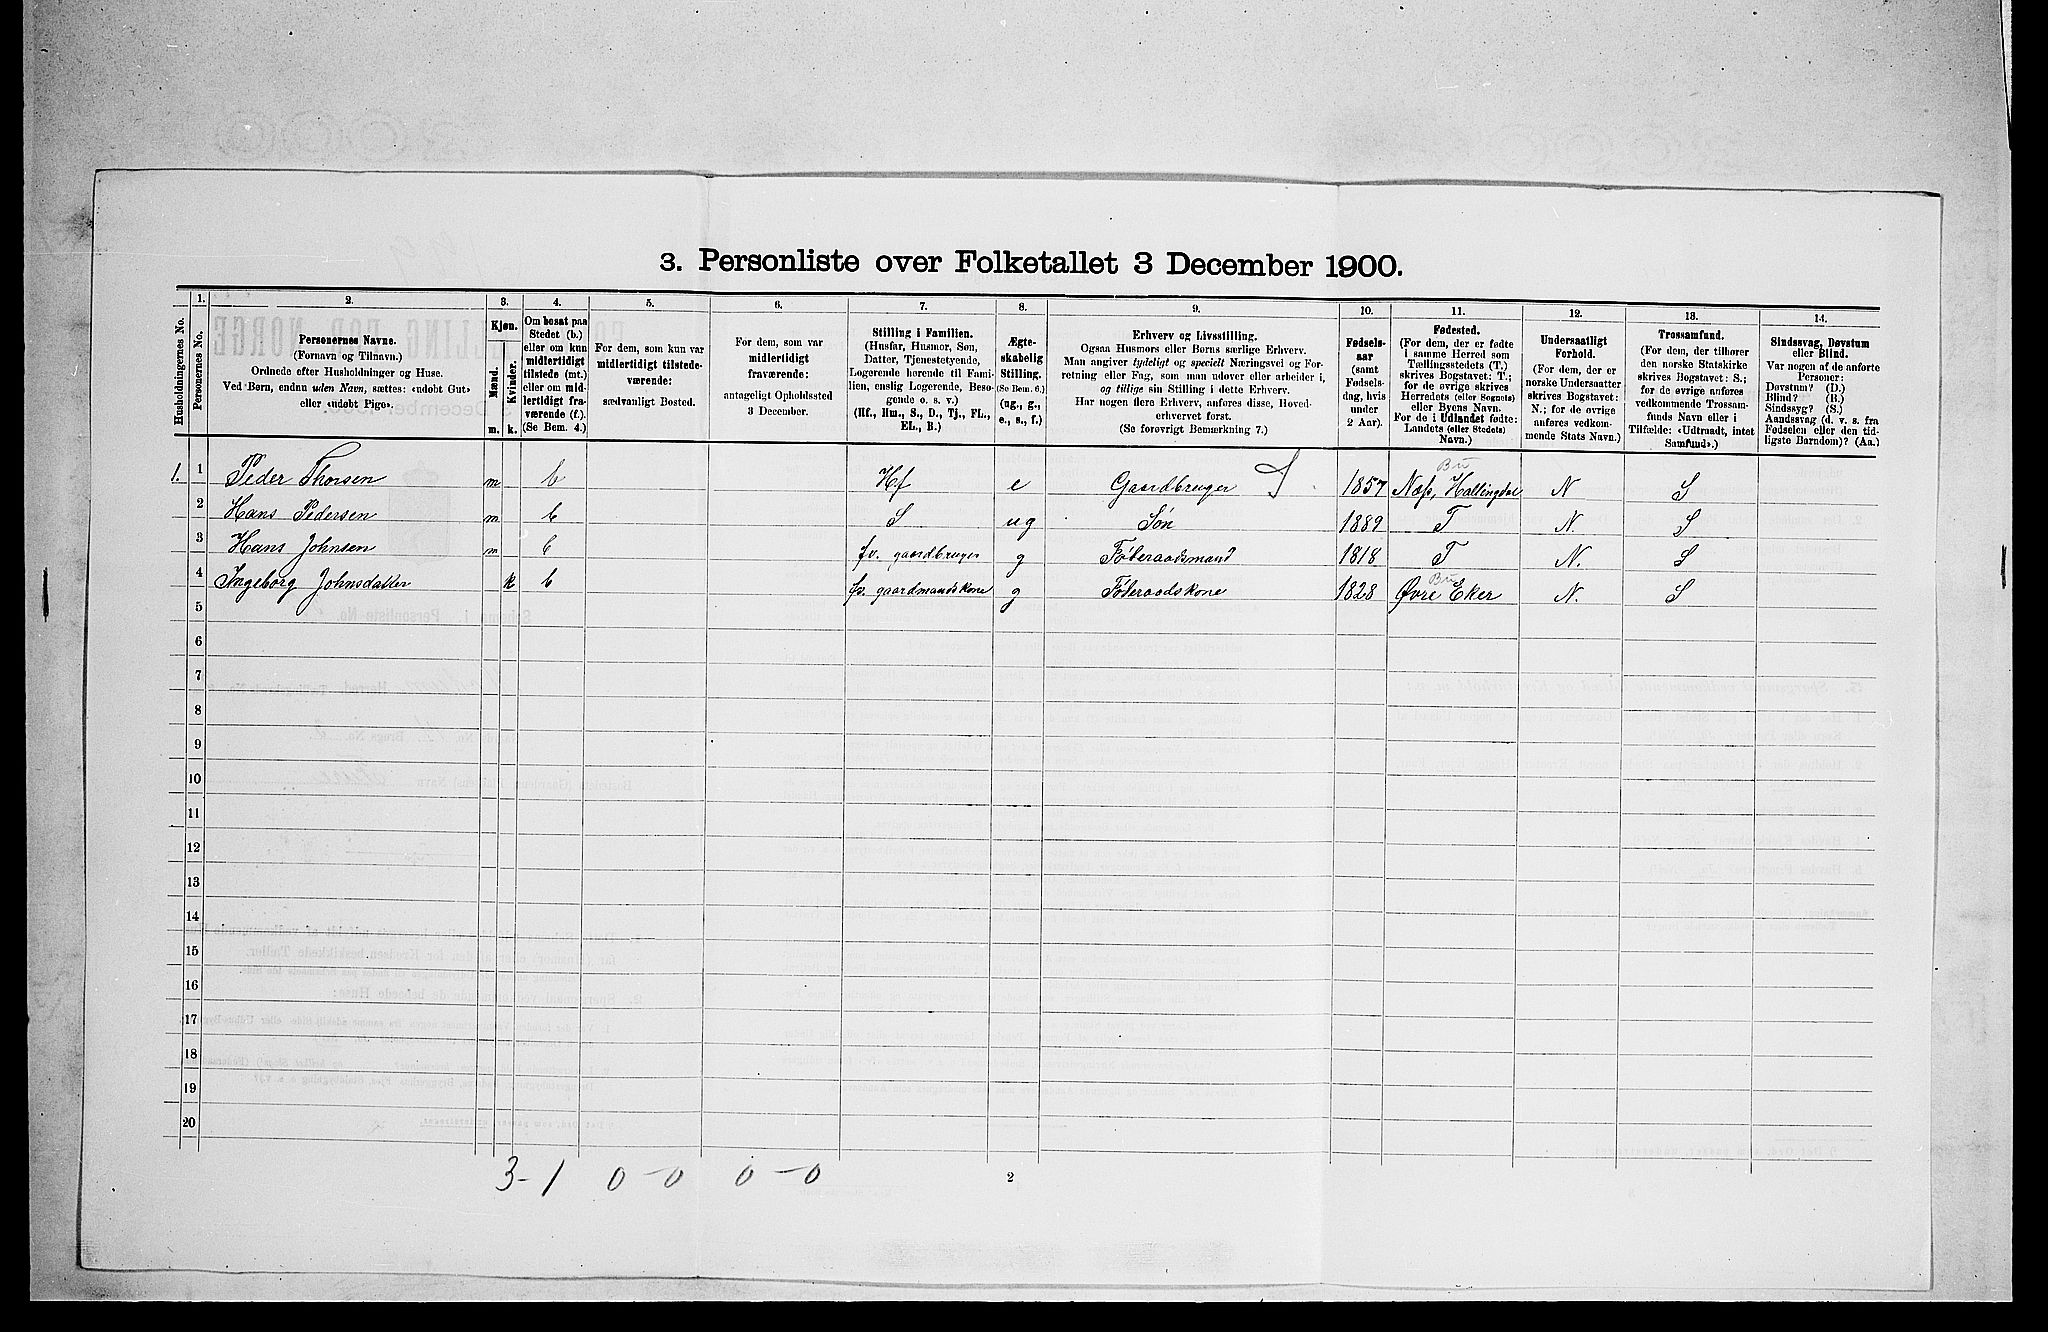 3. Personliste over Folketallet 3 December 1900.
1. 2. 3. 4. 5. 6. 7. 8. 9. 10. 11. 12. 13. 14.
Husholdningernes No.
Personernes No.
Personernes Navne.
(Fornavn og Tilnavn.)
Ordnede efter Husholdninger og Huse.
Ved Børn, endnu uden Navn, sættes: «udøbt Gut»
eller «udøbt Pige».
Kjøn.
Mænd.
Kvinder.
m. k.
Om bosat paa
Stedet (b.)
eller om kun
midlertidigt
tilstede (mt.)
eller om mid-
lertidigt fra-
værende (f.).
(Se Bem. 4.)
For dem, som kun var
midlertidigt tilstede-
værende:
sædvanligt Bosted.
For dem, som var
midlertidigt
fraværende:
antageligt Opholdssted
3 December.
Stilling i Familien.
(Husfar, Husmor, Søn,
Datter, Tjenestetyende,
Logerende hørende til Fami-
lien, enslig Logerende, Besø-
gende o. s. v.)
(Hf., Hm., S., D., Tj., FL.,
EL., B.)
Ægte-
skabelig
Stilling.
(Se Bem. 6.)
(ug., g.,
e., s., f.)
Erhverv og Livsstilling.
Ogsaa Husmors eller Børns særlige Erhverv.
Man angiver tydeligt og specielt Næringsvei og For-
retning eller Fag, som man udøver eller arbeider i,
og tillige sin Stilling i dette Erhverv.
Har nogen flere Erhverv, anføres disse, Hoved-
erhvervet først.
(Se forøvrigt Bemærkning 7.)
Fødsels-
aar
(samt
Fødsels-
dag, hvis
under
2 Aar).
Fødested.
(For dem, der er fødte
i samme Herred som
Tællingsstedets (T.)
skrives Bogstavet: T.;
for de øvrige skrives
Herredets (eller Sognets)
eller Byens Navn.
For de i Udlandet fødte:
Landets (eller Stedets)
Navn.)
Undersaatligt
Forhold.
(For dem, der er
norske Undersaatter
skrives Bogstavet:
N.; for de øvrige
anføres vedkom-
mende Stats Navn.)
Trossamfund.
(For dem, der tilhører
den norske Statskirke
skrives Bogstavet: S.;
for de øvrige anføres
vedkommende Trossam-
funds Navn eller i
Tilfælde: «Udtraadt, intet
Samfund».)
Sindssvag, Døvstum
eller Blind.
Var nogen af de anførte
Personer:
Døvstum? (D.)
Blind? (B.)
Sindssyg? (S.)
Aandssvag (d. v. s. fra
Fødselen eller den tid-
ligste Barndom)? (Aa.)
1. 1 Peder Thorsen m b Hf e Gaardbruger S 1857 Bu Næss, Hallingdal N S
2 Hans Pedersen m b S ug Søn 1889 T N. S
3 Hans Johnsen m b fv. gaardbruger g Føderaadsmand 1818 T N. S
4 Ingeborg Johnsdatter k b fv. gaardmandskone g Føderaadskone 1828 Bu Øvre Eker N. S
5
6
7
8
9
10
11
12
13
14
15
16
17
18
19
20
3 - 1 0 - 0 0 - 0
2